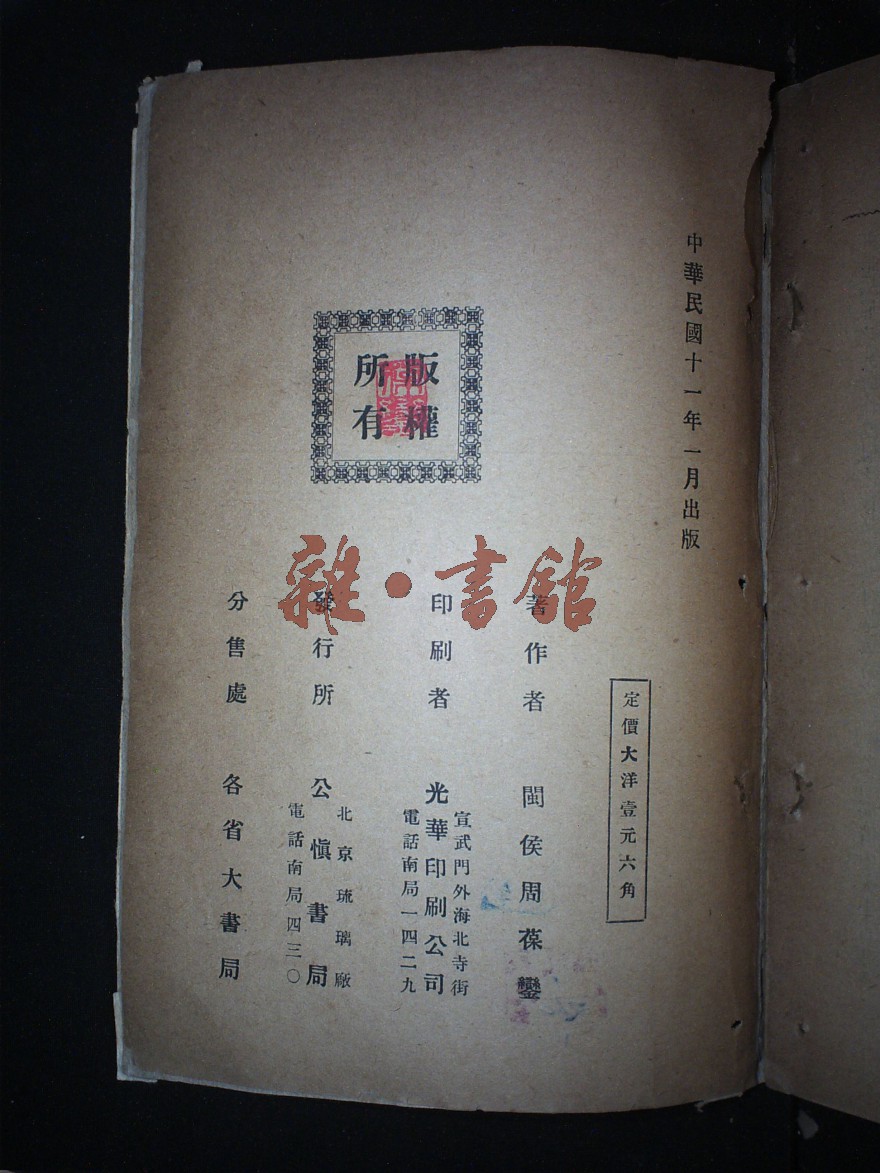 中華民國十一年一月出版
定價大洋壹元六角
版權
所有
著作者 閩侯周葆鑾
印刷者 光華印刷公司
宣武門外海北寺街
電話南局一四二九
發行所 公愼書局
北京琉璃廠
電話南局四三〇
分售處 各省大書局
雜·書館